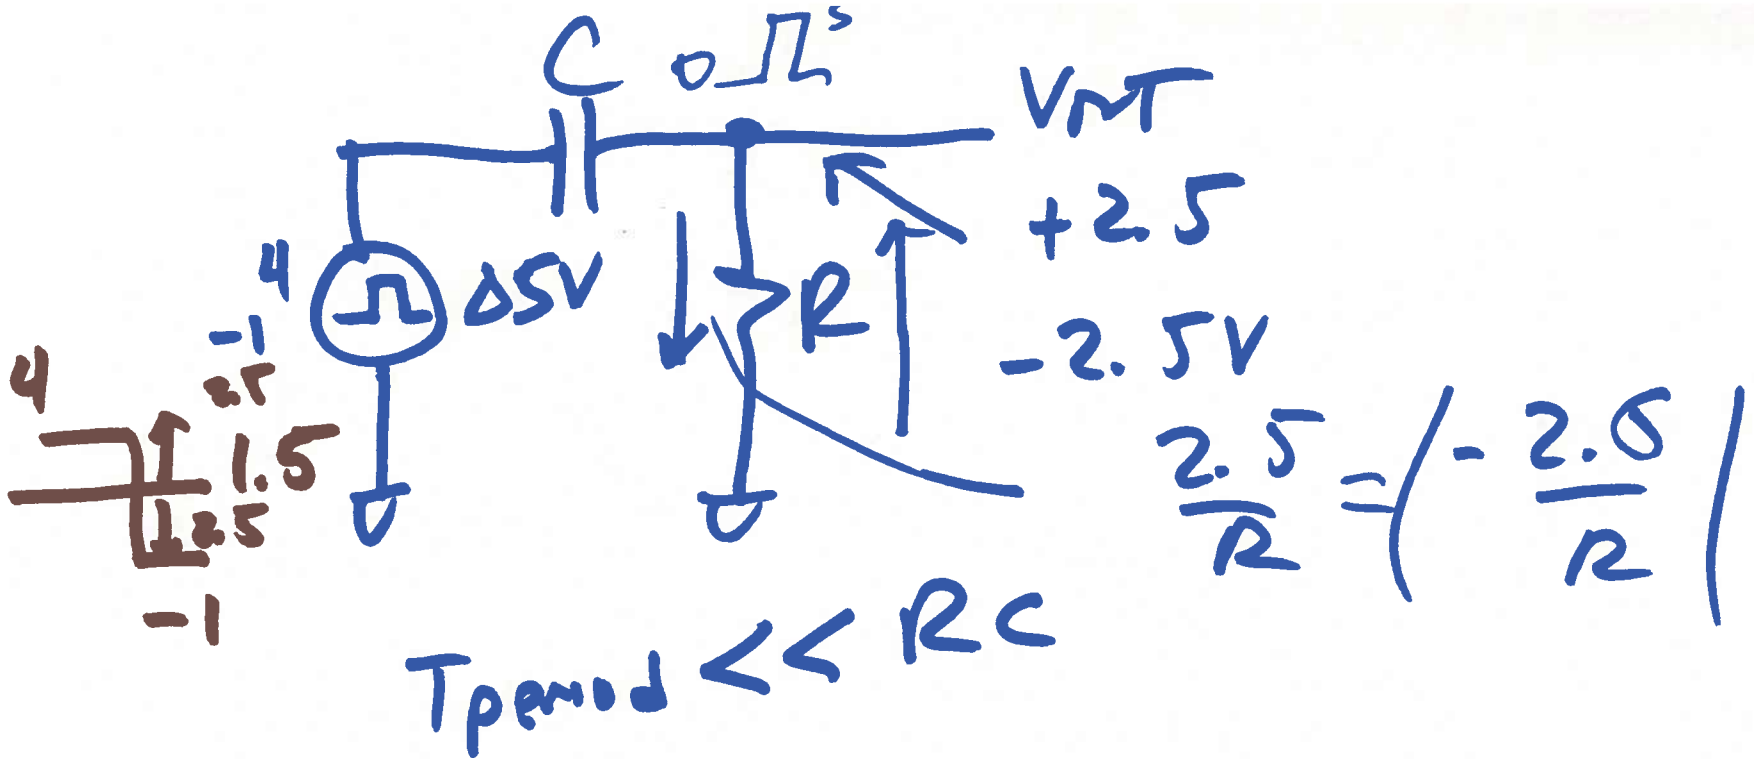 C 0 5
VOUT
+2.5
4 Δ5V R
-1
-2.5V
4
2.5
1.5
2.5
-1
2.5/R = |-2.5/R|
Tperiod << RC